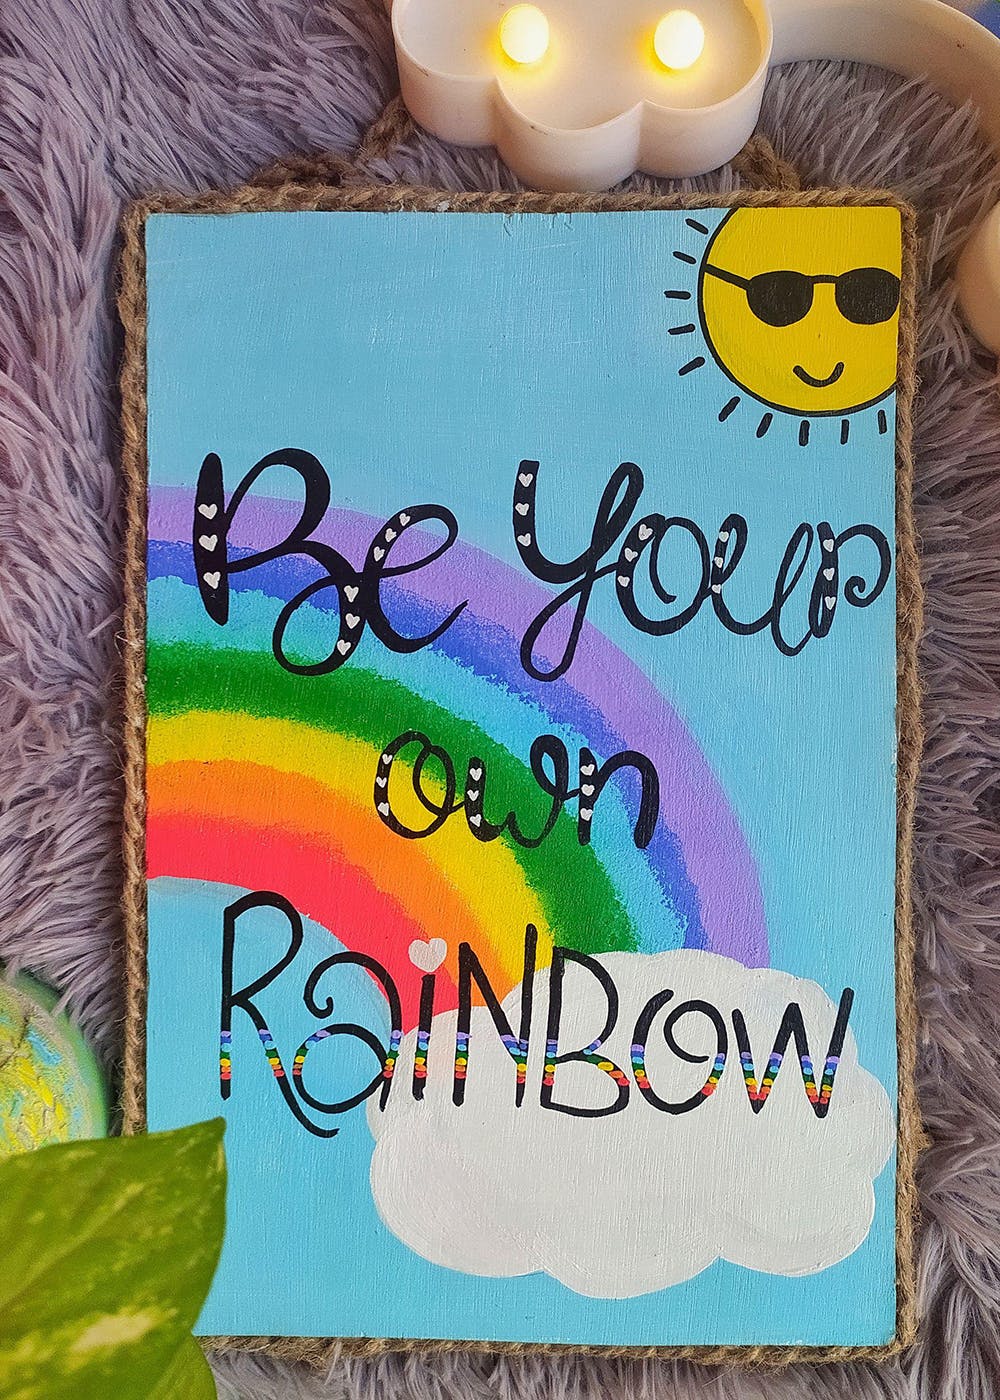 Be Your
own
RaiNBOW